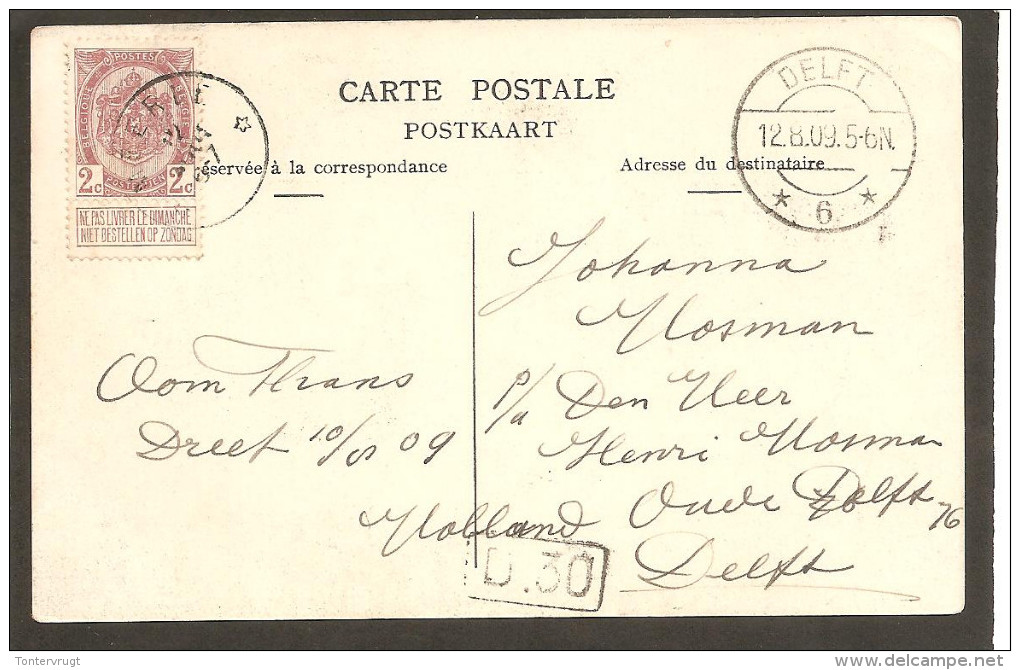 POSTES
BELGIQUE BELGIË
2c 2c
POSTERIJEN
NE PAS LIVRER LE DIMANCHE
NIET BESTELLEN OP ZONDAG
CARTE POSTALE
POSTKAART
éservée à la correspondance
Adresse du destinataire
DELFT
12.8.09.5-6N.
6
Oom Frans
Dreet 10/8 09
Johanna
Mosman
p/a Den Heer
Henri Mosman
Oude Delft 76
Holland Delft
D.30
Tontervrugt
http://www.delcampe.net